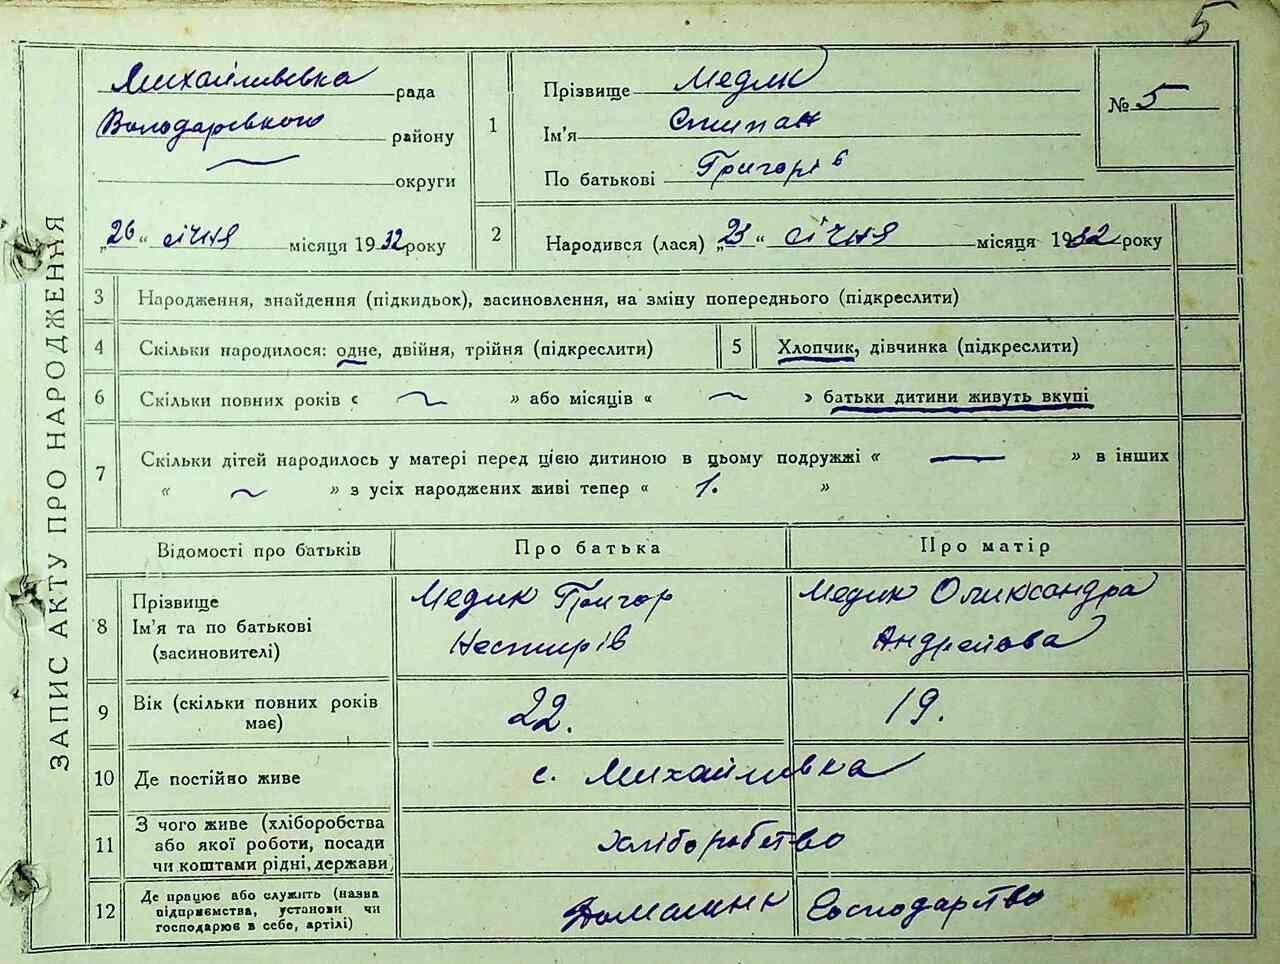 5
Михайлівська рада
Володарського району
округи
„26“ січня місяця 1932 року
1
Прізвище Медик
Ім'я Стипан
По батькові Григорів
№ 5
2
Народився (лася) „23“ січня місяця 1932 року
ЗАПИС АКТУ ПРО НАРОДЖЕННЯ
3 Народження, знайдення (підкидьок), засиновлення, на зміну попереднього (підкреслити)
4 Скільки народилося: одне, двійня, трійня (підкреслити)
5 Хлопчик, дівчинка (підкреслити)
6 Скільки повних років « » або місяців « » батьки дитини живуть вкупі
7 Скільки дітей народилось у матері перед цією дитиною в цьому подружжі « — » в інших
« » з усіх народжених живі тепер « 1. »
Відомості про батьків Про батька Про матір
8
Прізвище
Ім'я та по батькові
(засиновителі)
Медик Григор
Нестирів
Медик Оликсандра
Андреівова
9
Вік (скільки повних років
має)
22. 19.
10 Де постійно живе с. Михайливка
11
З чого живе (хліборобства
або якої роботи, посади
чи коштами рідні, держави)
хліборобство
12
Де працює або служить (назва
підприємства, установи чи
господарює в себе, артілі)
Домашни Господарство